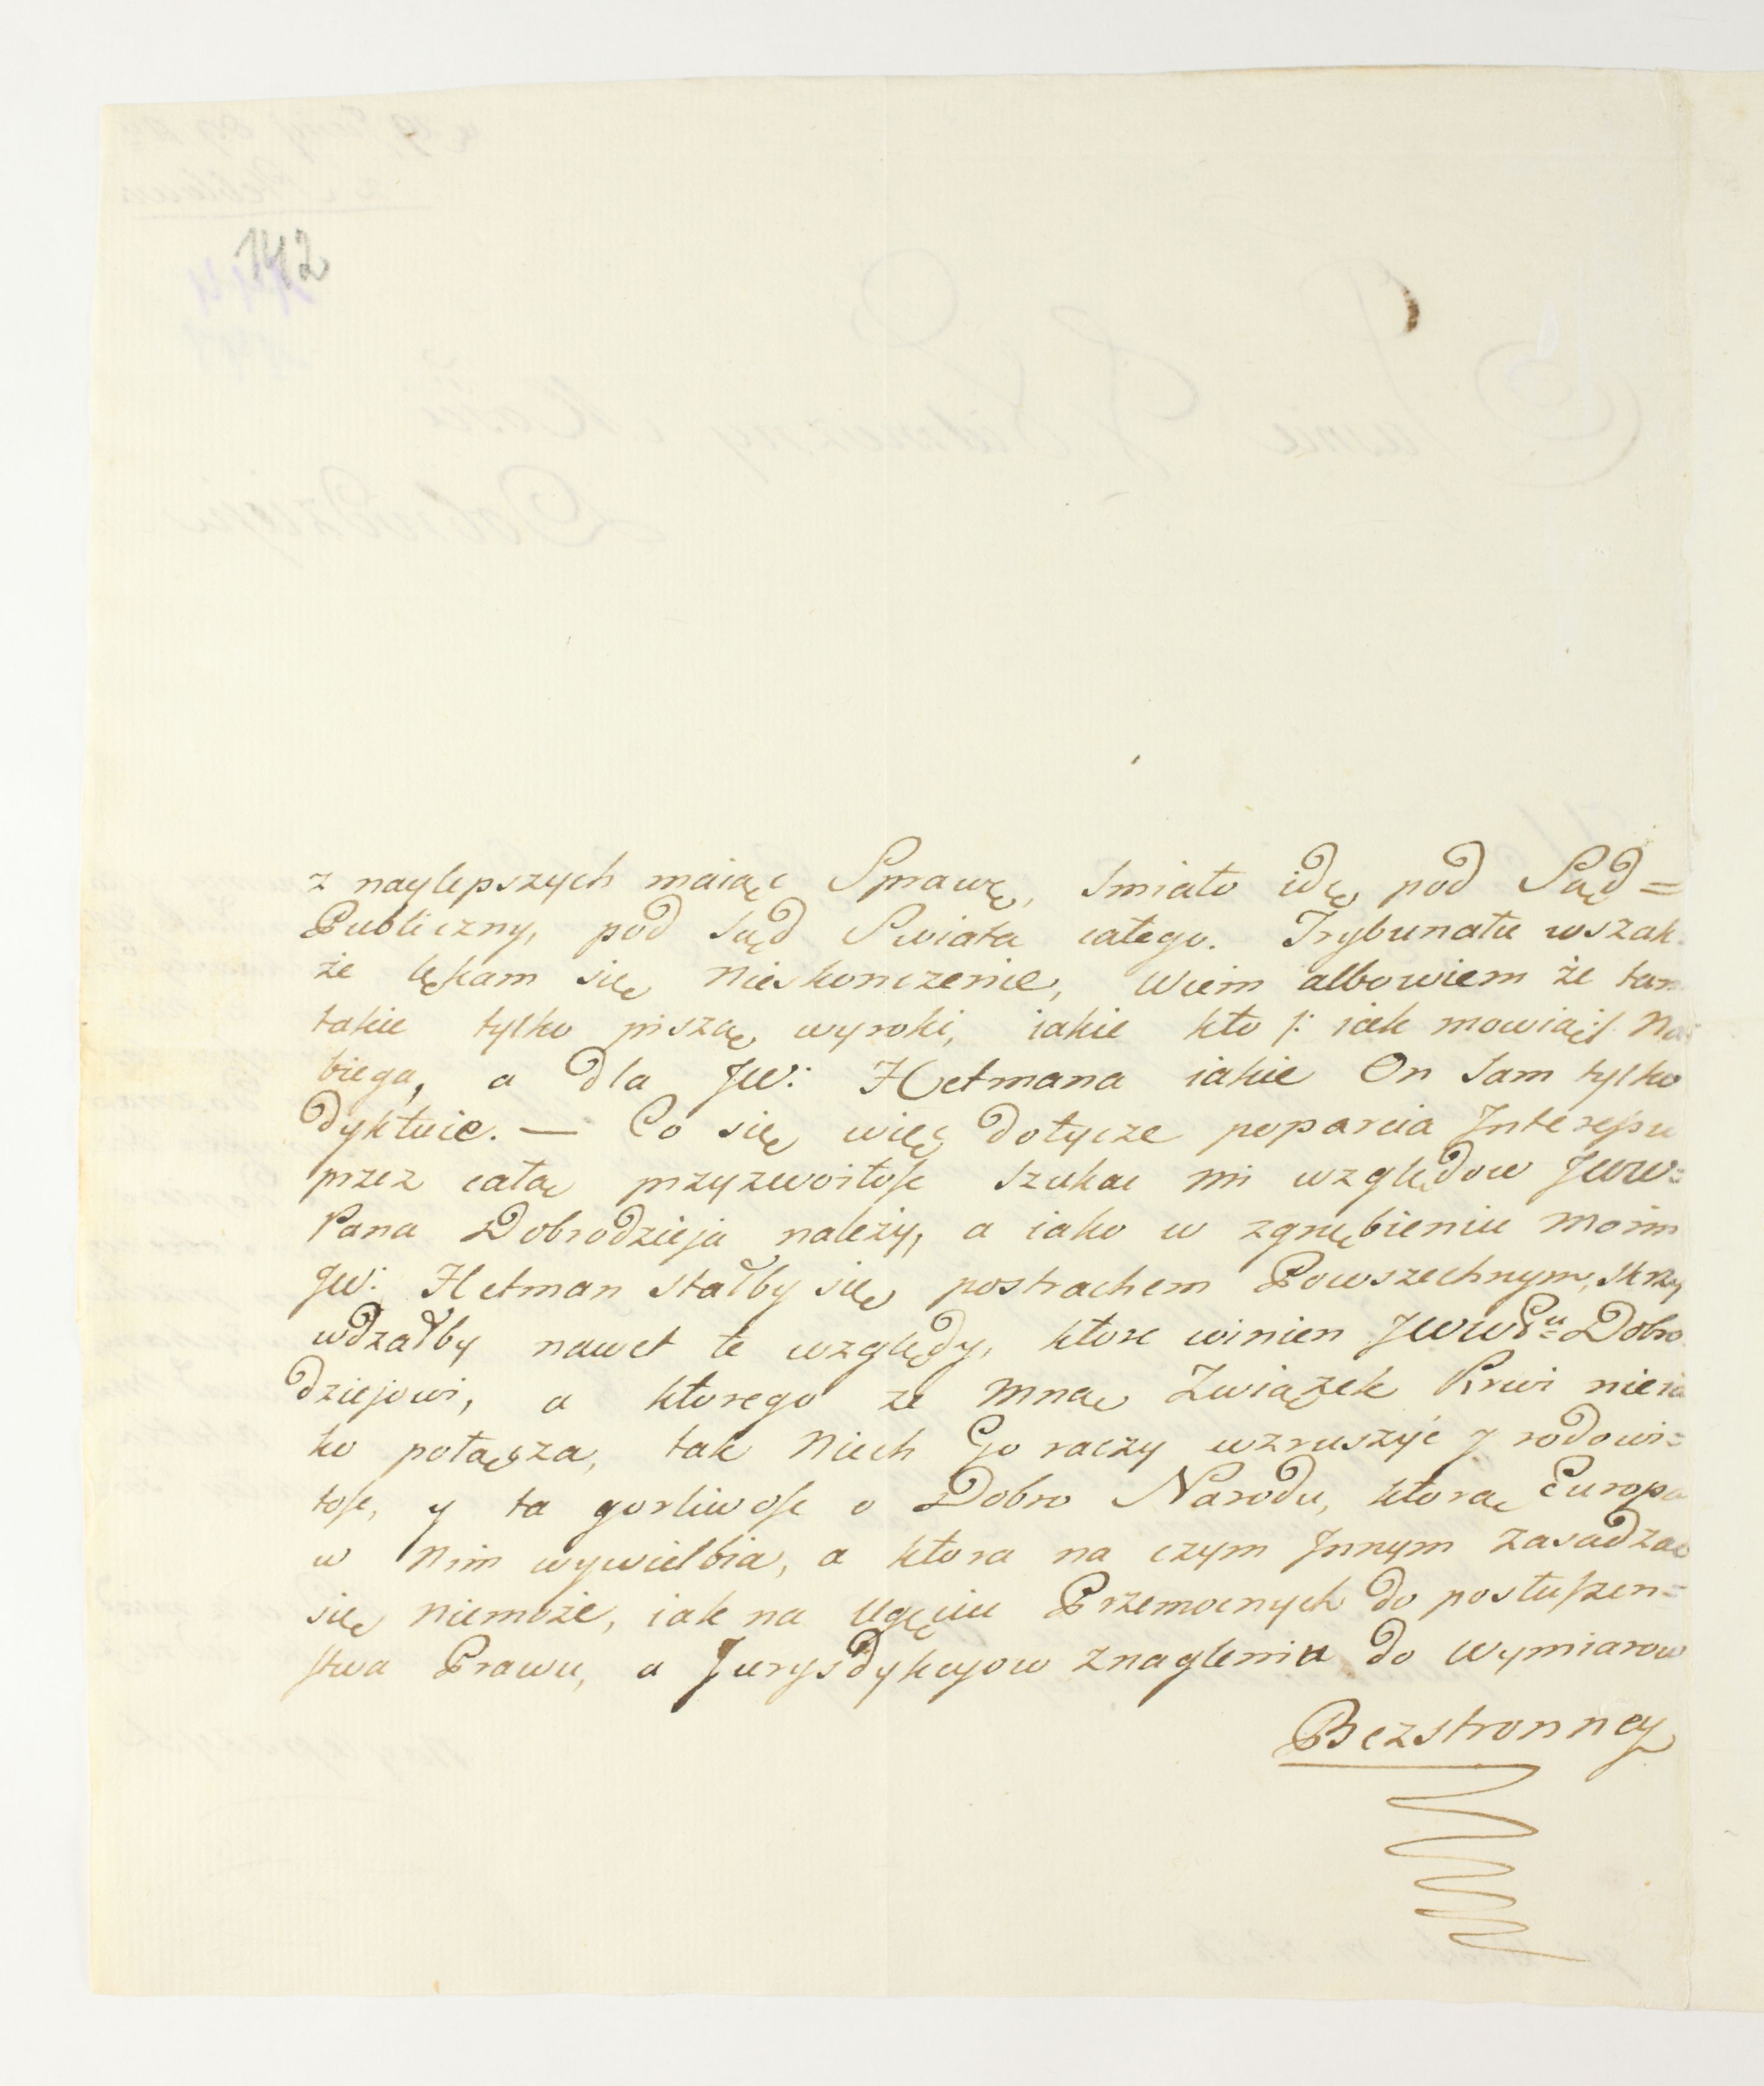 142
z naylepszych maiąc Sprawę, smiało idę pod Sąd=
Publiczny, pod sąd Swiata całego. Trybunału wszak
że lękam się nieskonczenie, Wiem albowiem że tam
takie tylko piszą wyroki, iakie kto /: iak mowią:/ Na
biega, a dla JW: Hetmana iakie On sam tylko
dyktuie. — Co się więc dotycze poparcia Interessu
przez całą przyzwoitość szukać mi względow JWW=
Pana Dobrodzieja należy, a iako w zgnębieniu moim
JW: Hetman stałby się postrachem Powszechnym, skrzy
wdzałby nawet te względy, ktore winien JWWPu= Dobro
dziejowi, a ktorego ze mną Związek Krwi nieia
ko połącza, tak niech Go raczy wzruszyć y rodowi=
tość, y ta gorliwość o Dobro Narodu, ktorą Europa
w Nim wywielbia, a ktora na czym Innym zasadzać
się niemoże, iak na Ugięciu Przemocnych do posłuszen=
stwa Prawu, a Jurysdykcyow znaglenia do Wymiarow
Bezstronney